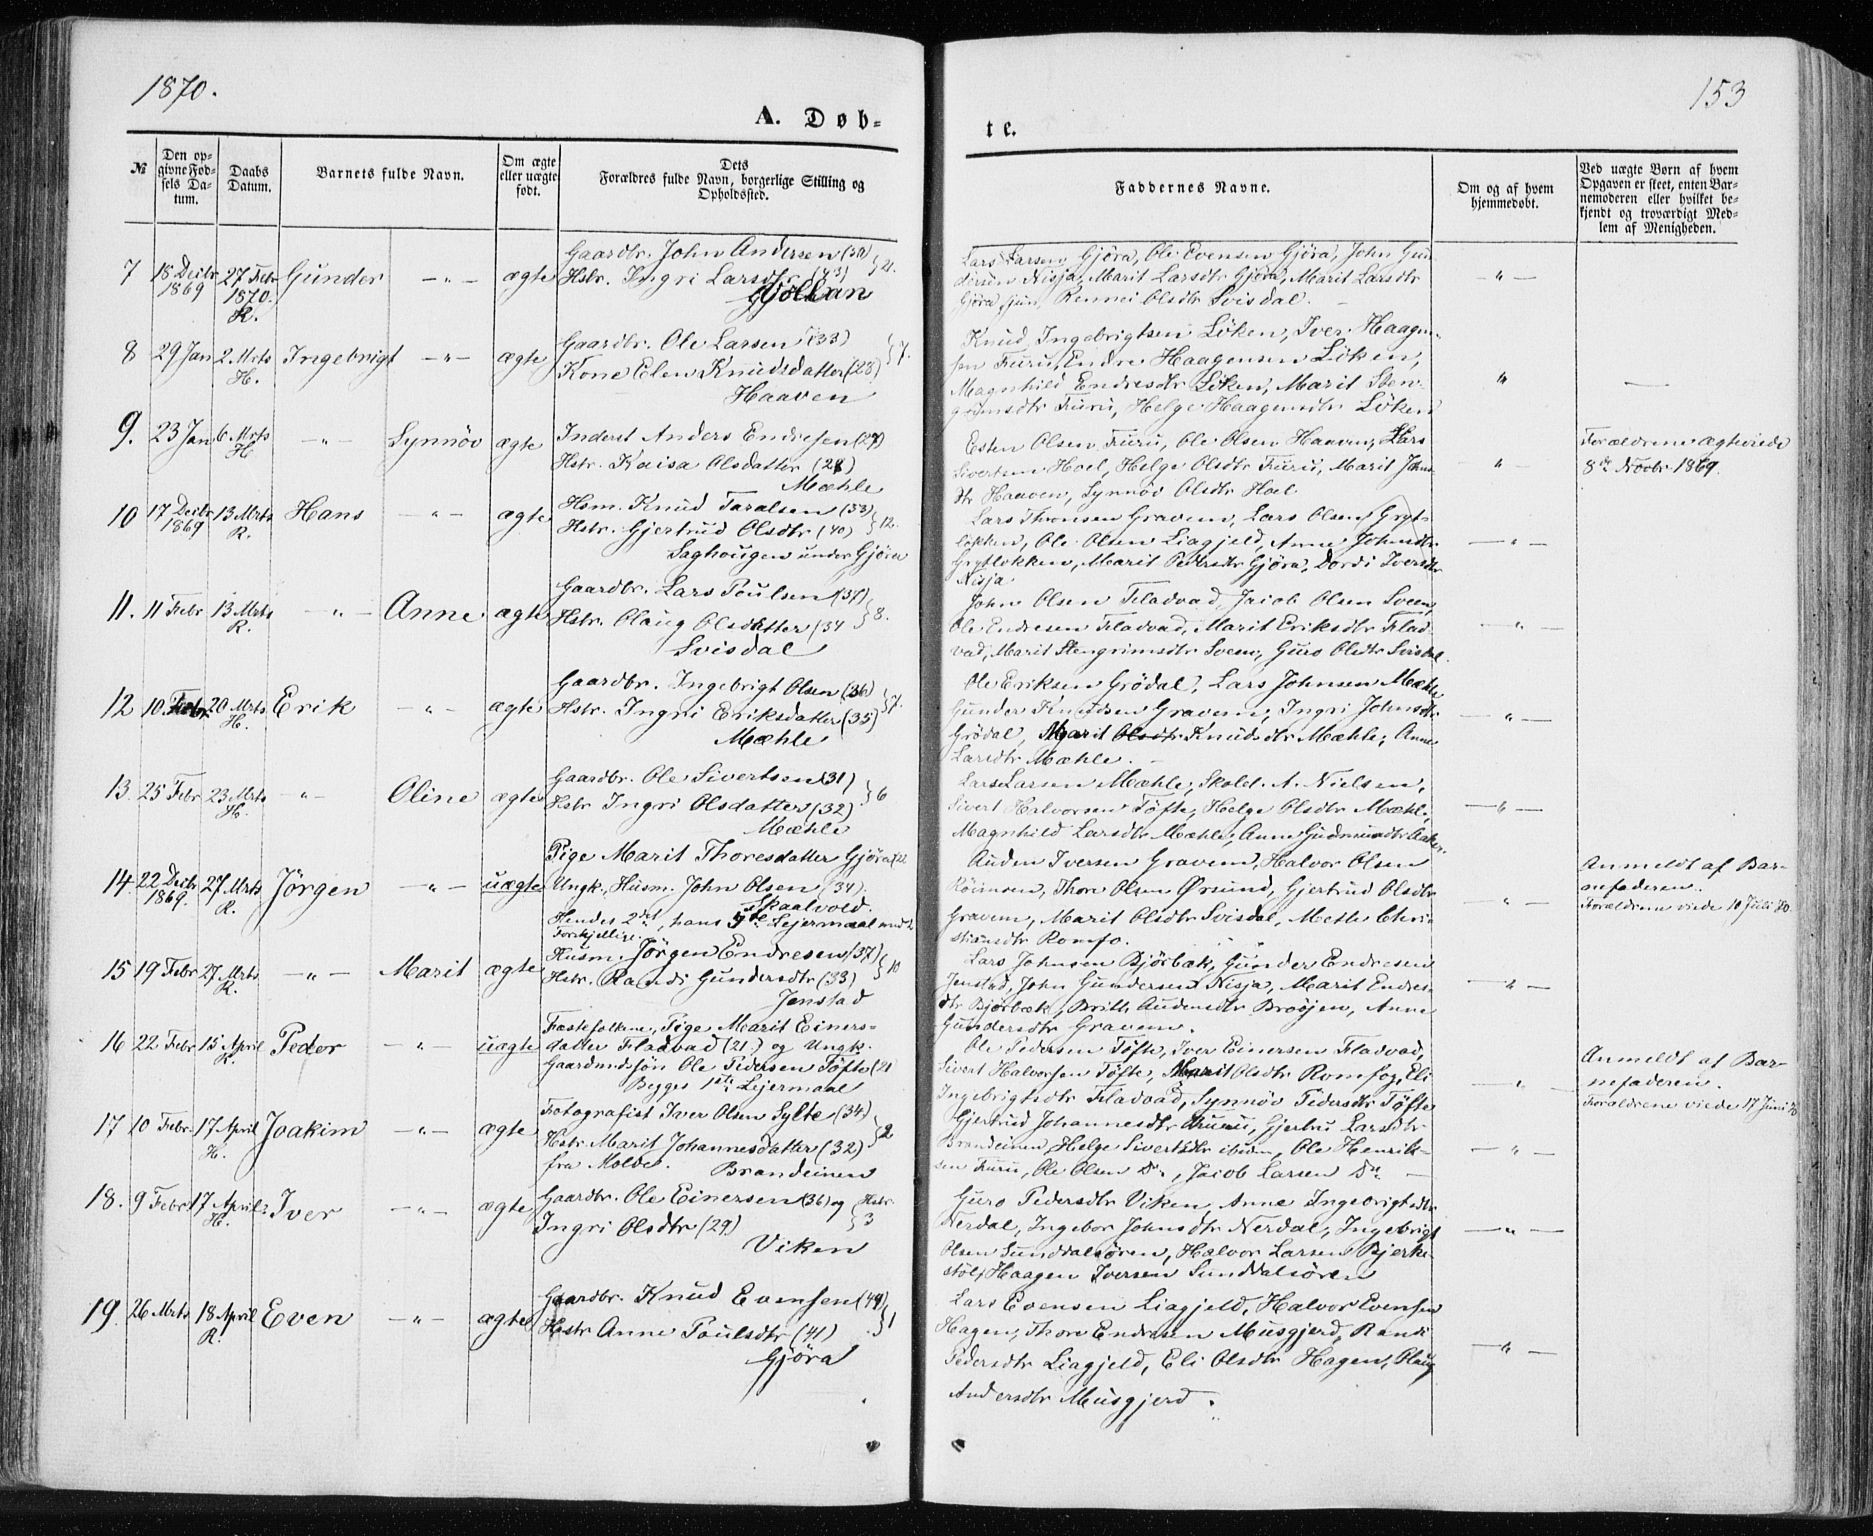 1870.
153
A. Døb-
te.
№
Den op-
givne Fød-
sels Da-
tum.
Daabs
Datum.
Barnets fulde Navn.
Om ægte
eller uægte
født.
Dets
Forældres fulde Navn, borgerlige Stilling og
Opholdssted.
Faddernes Navne.
Om og af hvem
hjemmedøbt.
Ved uægte Børn af hvem
Opgaven er skeet, enten Bar-
nemoderen eller hvilket be-
kjendt og troværdigt Med-
lem af Menigheden.
7
18 Decbr
1869
27 Febr
1870.
R.
Gunder
-"-
ægte
Gaardbr. John Andersen
Hstr. Ingri Larsdtr (43)
Lars Larsen Gjöra, Ole Evensen Gjöra, John Gun
dersen Nisja, Marit Larsdtr Gjöra, Marit Larsdtr
Gjöra, Rennei Olsdtr Svisdal.
-"-
8
29 Jan
2 Mrts
H.
Ingebrigt
-"-
ægte
Gaardbr. Ole Larsen (33)
Kone Elen Knudsdatter (23) } 7.
Haaven
Knud Ingebrigtsen Löken, Iver Haagen-
sen Furu, Endre Haagensen Löken,
Magnhild Endresdtr Löken, Marit Sten-
grimsdtr Furu, Helge Haagensdtr Löken
"
—
9.
23 Jan
6 Mrts
H
-"-
Synnöv
ægte
Inderst Anders Endresen (27)
Hstr. Kaisa Olsdatter (28)
Mæhle
Esten Olsen Furu, Ole Olsen Haaven, Lars
Sivertsen Hoel, Helge Olsdtr Furu, Marit Johns
dtr Haaven, Synnöv Olsdtr Hoel
"
Forældrene ægteviede
8de Novbr 1869.
10
17 Decbr
1869
13 Mrts
R.
Hans
-"-
ægte
Hsm. Knud Taralsen (53)
Hstr. Gjertrud Olsdtr (40) } 12.
Saghougen under Gjöra
Lars Thronsen Gravem, Lars Olsen Gryt-
lökken, Ole Olsen Liagjeld, Anne Johnsdtr
Grytlökken, Marit Pedersdtr Gjöra, Dordi Iversdtr
Nisja.
-"-
11.
11 Febr
13 Mrts
R.
-"-
Anne
ægte
Gaardbr. Lars Poulsen (37)
Hstr. Olaug Olsdatter (34 } 8.
Svisdal
John Olsen Fladvad, Jacob Olsen Sveen,
Ole Endresen Fladvad, Marit Eriksdtr Flad-
vad, Marit Stengrimsdtr Sveen, Guro Olsdtr Svisdal.
-"-
12
10 Febr
20 Mrts
H.
Erik
-"-
ægte
Gaardbr. Ingebrigt Olsen (36)
Hstr. Ingri Eriksdatter (35) } 7.
Mæhle
Ole Eriksen Grödal, Lars Johnsen Mæhle
Gunder Knudsen Gravem, Ingri Johnsdtr
Grödal, Marit Olsdtr Knudsdtr Mæhle, Anne
Larsdtr Mæhle.
-"-
13
25 Febr
23 Mrts
H.
-"-
Oline
ægte
Gaardbr. Ole Sivertsen (31)
Hstr Ingri Olsdatter (32) } 6
Mæhle
Lars Larsen Mæhle, Skolel. A. Nielsen,
Sivert Halvorsen Töfte, Helge Olsdtr Mæhle,
Magnhild Larsdtr Mæhle, Anne Gudmundsdtr
-"-
14.
22 Decbr
1869.
27 Mrts
R.
Jörgen
-"-
uægte
Pige Marit Thoresdatter Gjöra
Ungk. Husm. John Olsen (34).
Skaalvold.
Hendes 2det, hans 5te Lejermaal med 2
Forskjellige.
Auden Iversen Gravem, Halvor Olsen
Röimoen, Thore Olsen Örsund, Gjertrud Olsdtr
Gravem, Marit Olsdtr Svisdal, Mette Chri-
stiansdtr Romfo.
-"-
Anmeldt af Bar-
nefaderen.
Forældrene viede 10 Juli 70.
15
19 Febr
27 Mrts
R.
-"-
Marit
ægte
Husm. Jörgen Endresen (37)
Hstr. Randi Gundersdtr (33) } 10
Jenstad
Lars Johnsen Björbæk, Gunder Endresen
Jenstad, John Gundersen Nisja, Marit Endres-
dtr Bjørbæk, Britt Audensdtr Broöjen, Anne
Gundersdtr Gravem.
-"-
16
22 Febr
15 April
R.
Peder
-"-
uægte
Fæstefolkene, Pige Marit Einers-
datter Fladvad (21.) og Ungk.
Gaardmdssön Ole Pedersen Töfte (21
Begges 1ste Lejermaal
Ole Pedersen Töfte, Iver Einersen Fladvad,
Sivert Halvorsen Töfte, Marit Olsdtr Romfog, Eli
Ingebrigtsdtr Fladvad, Synnöv Pedersdtr Töfte
-"-
Anmeldt af Bar-
nefaderen.
Forældrene viede 17 Juni 70
17
10 Febr.
17 April
H.
Joakim
-"-
ægte
Fotografist Iver Olsen Sylte (34)
Hstr. Marit Johannesdatter (32) } 2
fra Molde. Brandeinen
Gjertrud Johannesdtr Furu, Gjertru Larsdtr
Brandeinen, Helge Sivertsdtr ibidm, Ole Henrik-
sen Furu, Ole Olsen Do, Jacob Larsen Do. —
-"-
18.
9 Febr
17 April
H.
Iver
-"-
ægte
Gaardbr. Ole Einersen (36) og Hstr.
Ingri Olsdtr (29) } 3
Viken
Guro Pedersdtr Viken, Anne Ingebrigtsdtr
Nerdal, Ingebor Johnsdtr Nerdal, Ingebrigt
Olsen Sunddalsören, Halvor Larsen Bjerke-
stöl, Haagen Iversen Sunddalsören
-"-
19.
26 Mrts
18 April
R.
Even
-"-
ægte
Gaardbr. Knud Evensen (44)
Hstr Anne Poulsdtr (41) } 1
Gjöra
Lars Evensen Liagjeld, Halvor Evensen
Hagen, Thore Endresen Musgjerd, Randi
Pedersdtr Liagjeld, Eli Olsdtr Hagen, Olaug
Andersdtr Musgjerd.
-"-